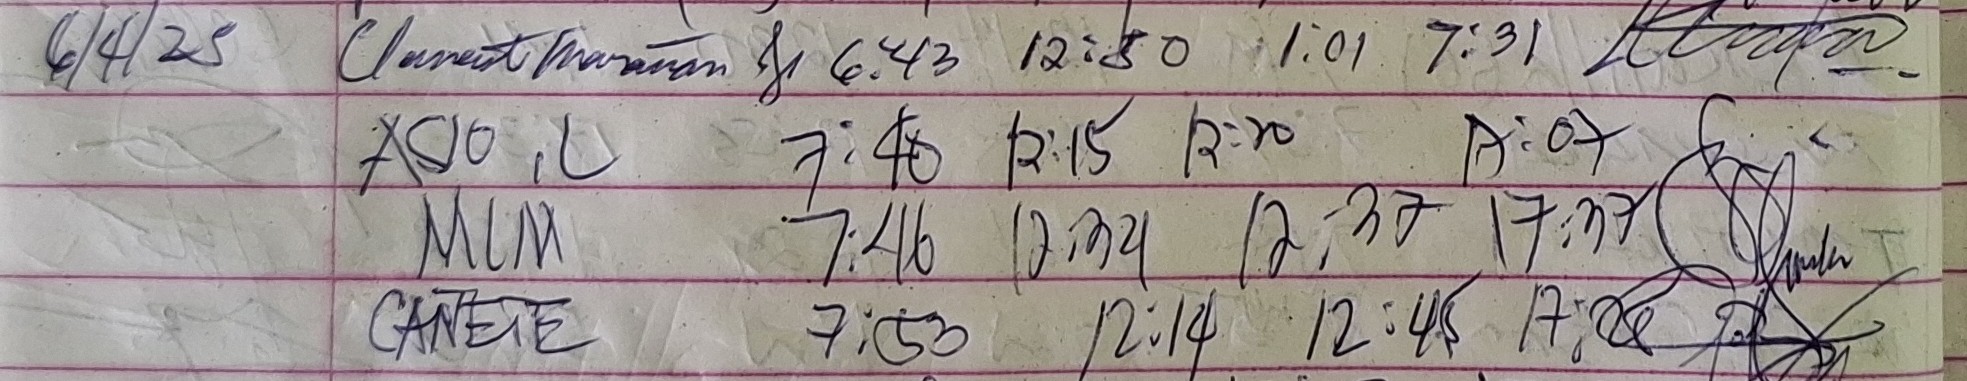 6/4/25 Clement Maravan Jr 6:43 12:50 1:01 7:31
ASIO, L 7:40 12:15 12:20 17:07
MLM 7:46 12:34 12:37 17:37
CAÑETE 7:53 12:14 12:45